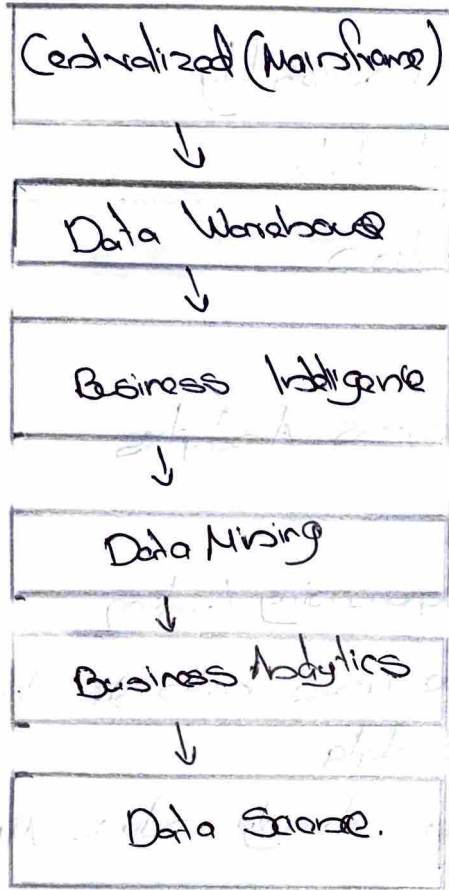 Centralized (Mainframe)
↓
Data Warehouse
↓
Business Intelligence
↓
Data Mining
↓
Business Analytics
↓
Data Science.